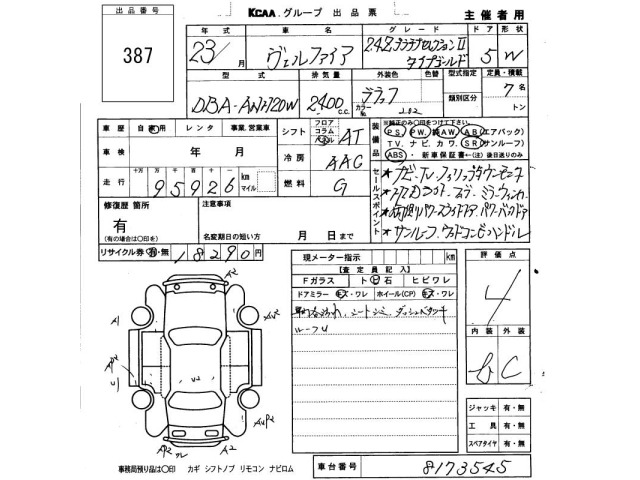 出品番号
387
KCAA グループ 出品票
主催者用
年式 車名 グレード ドア 形状
23/月 ヴェルファイア 2.4Z プラチナセレクションⅡ タイプゴールド 5 W
型式 排気量 外装色 色替 型式指定 定員・積載
DBA-ANH20W 2400 c.c. ブラック カラーNo. 202 類別区分 7名 トン
車歴 自家用 レンタ 事業.営業車
シフト フロア コラム パネル AT
車検 年 月
冷房 AAC
走行 十万 万 千 百 十 95926 km マイル
燃料 G
装備品 ※純正のみ〇印をつけて下さい。
PS PW 純AW AB(エアバック)
TV. ナビ. カワ. SR(サンルーフ)
ABS ・新車保証書←(注)後日送りのみ
セールスポイント
★ナビ TV フリップダウンモニター
★両側パワースライドドア パワーバックドア
★サンルーフ ウッドコンビハンドル
修復歴 箇所
有
(有の場合は〇印を)
注意事項
名変期日の短い方 月 日まで
リサイクル券 有・無 18290円
現メーター指示 km
【査定員記入】
Fガラス ト ビ 石 ヒビワレ
ドアミラー キズ・ワレ ホイール(CP) キズ・ワレ
シートシミ ダッシュベタツキ
ルーフU
評価点
4
内装 外装
b C
ジャッキ 有・無
工具 有・無
スペアタイヤ 有・無
A2
A1
AU2
AP2
U
AUP2
AP2
A2
事務局預り品は〇印 カギ シフトノブ リモコン ナビロム
車台番号 8173545